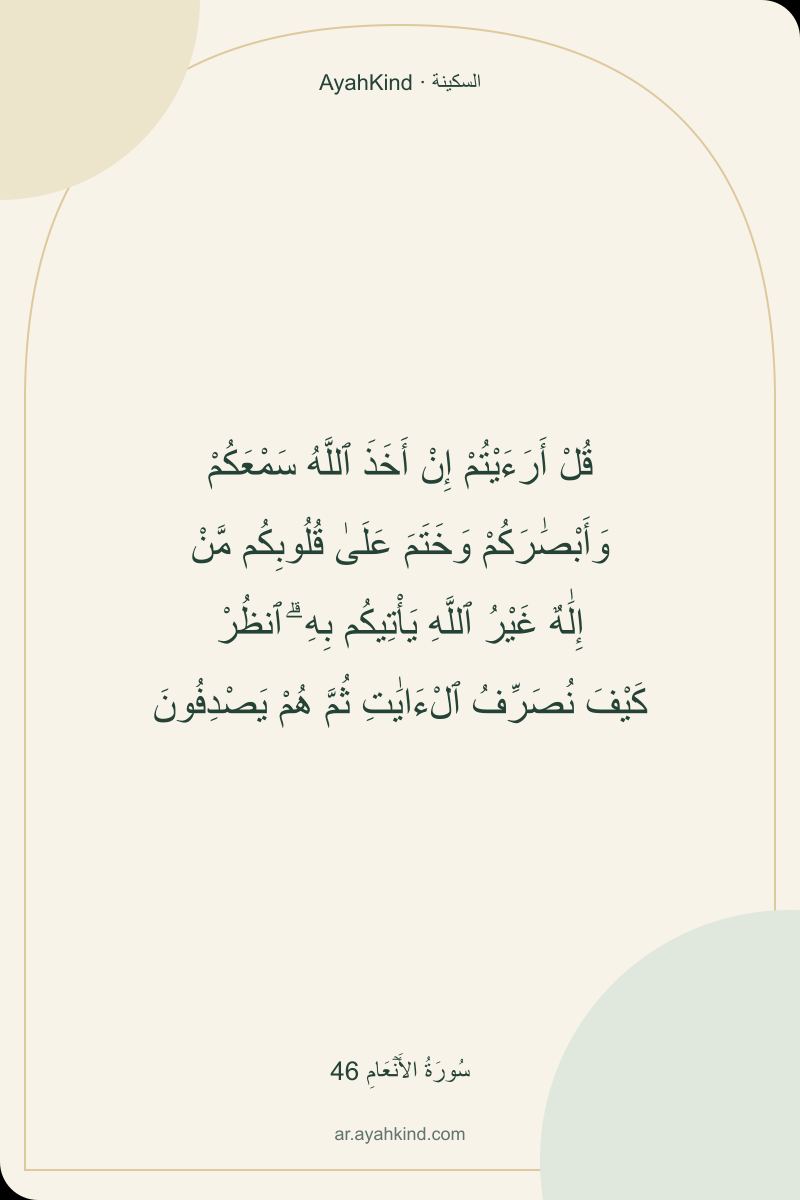 السكينة · AyahKind
قُلْ أَرَءَيْتُمْ إِنْ أَخَذَ ٱللَّهُ سَمْعَكُمْ
وَأَبْصَٰرَكُمْ وَخَتَمَ عَلَىٰ قُلُوبِكُم مَّنْ
إِلَٰهٌ غَيْرُ ٱللَّهِ يَأْتِيكُم بِهِ ۗ ٱنظُرْ
كَيْفَ نُصَرِّفُ ٱلْءَايَٰتِ ثُمَّ هُمْ يَصْدِفُونَ
سُورَةُ الأَنۡعَامِ 46
ar.ayahkind.com